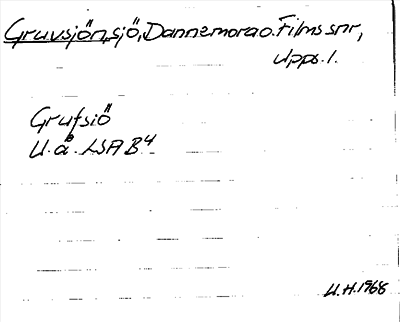 Gruvsjön, sjö, Dannemora o. Films snr,
Upps. l.
Grufsiö
U. å. LSA B4
U.H. 1968